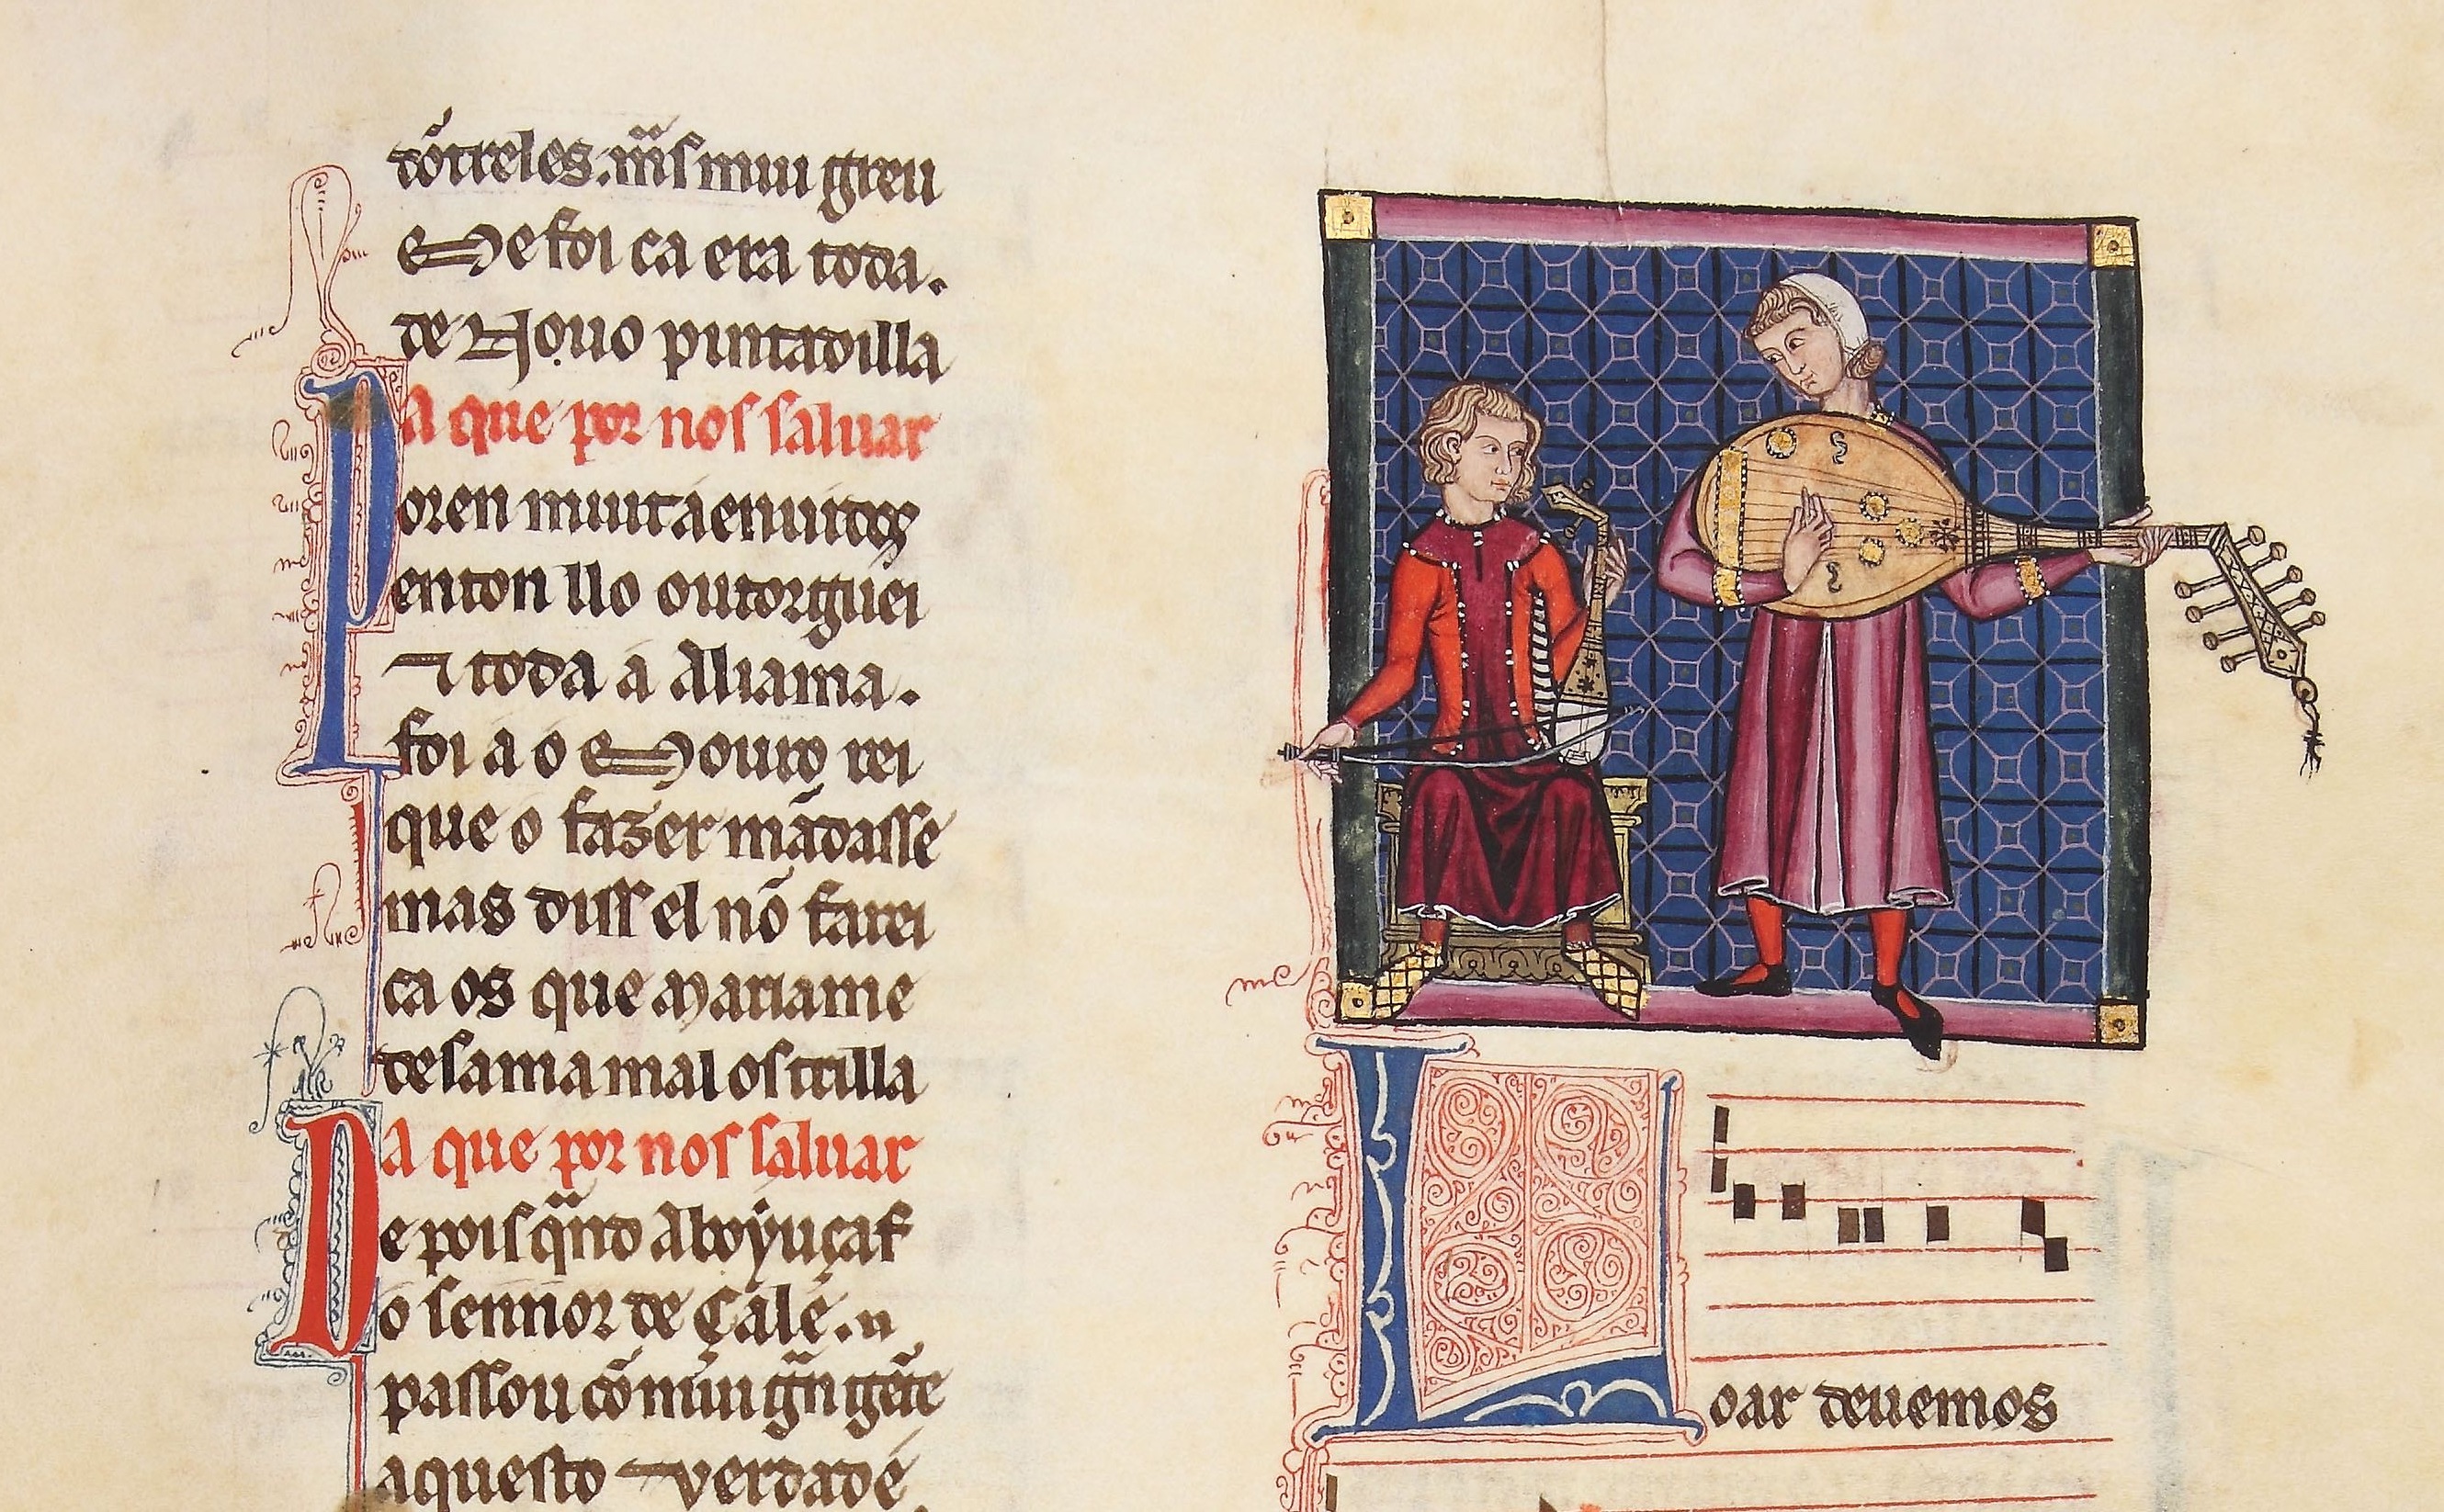 tõrreles. mãs muu greu
me foi ca era toda.
de Nouo pintadilla
Da que por nos saluar
Poren muita enuitos
enton llo outorguei
⁊ toda a Aliama.
foi a o Mouro rei
que o fazer mãdasse
mas diss el nõ farei
ca os que Mariame
desama mal os trilla
Da que por nos saluar
De pois qñdo Aboyuçaf
o sennor de Çalé.
passou cõ muu grñ gẽte
aquesto ⁊ verdade
Loar deuemos